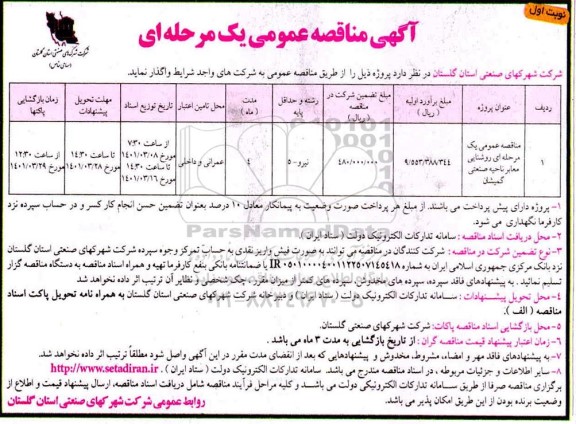 نوبت اول
آگهی مناقصه عمومی یک مرحله ای
شرکت شهرکهای صنعتی استان گلستان
(سهامی خاص)
شرکت شهرکهای صنعتی استان گلستان در نظر دارد پروژه ذیل را از طریق مناقصه عمومی به شرکت های واجد شرایط واگذار نماید.
ردیف | عنوان پروژه | مبلغ برآورد اولیه (ریال) | مبلغ تضمین شرکت در مناقصه (ریال) | رشته و حداقل پایه | مدت (ماه) | محل تامین اعتبار | تاریخ توزیع اسناد | مهلت تحویل پیشنهادات | زمان بازگشایی پاکتها
۱ | مناقصه عمومی یک مرحله ای روشنایی معابر ناحیه صنعتی گمیشان | ۹/۵۵۳/۳۸۸/۳۴۴ | ۴۸۰/۰۰۰/۰۰۰ | نیرو-۵ | ۴ | عمرانی و داخلی | از ساعت ۷:۳۰ مورخ ۱۴۰۱/۰۳/۰۸ تا ساعت ۱۴:۳۰ مورخ ۱۴۰۱/۰۳/۱۶ | تا ساعت ۱۴:۳۰ مورخ ۱۴۰۱/۰۳/۲۸ | از ساعت ۱۲:۳۰ مورخ ۱۴۰۱/۰۳/۲۹
۱- پروژه دارای پیش پرداخت می باشند. از مبلغ هر پرداخت صورت وضعیت به پیمانکار معادل ۱۰ درصد بعنوان تضمین حسن انجام کار کسر و در حساب سپرده نزد
کارفرما نگهداری می شود.
۲- محل دریافت اسناد مناقصه : سامانه تدارکات الکترونیک دولت (ستاد ایران).
۳- نوع تضمین شرکت در مناقصه : شرکت کنندگان در مناقصه می توانند به صورت فیش واریز نقدی به حساب تمرکز وجوه سپرده شرکت شهرکهای صنعتی استان گلستان
نزد بانک مرکزی جمهوری اسلامی ایران به شماره IR یا ضمانتنامه بانکی بنفع کارفرما تهیه و همراه اسناد مناقصه به دستگاه مناقصه گزار
تسلیم نمائید . به پیشنهادهای فاقد سپرده، سپرده های مخدوش، سپرده های کمتر از میزان مقرر، چک شخصی و نظایر آن ترتیب اثر داده نخواهد شد
۴- محل تحویل پیشنهادات : سامانه تدارکات الکترونیک دولت (ستاد ایران) و دبیرخانه شرکت شهرکهای صنعتی استان گلستان به همراه نامه تحویل پاکت اسناد
مناقصه ( الف ).
۵- محل بازگشایی اسناد مناقصه پاکات: شرکت شهرکهای صنعتی گلستان.
۶- زمان اعتبار پیشنهاد قیمت مناقصه گران : از تاریخ بازگشایی به مدت ۳ ماه می باشد .
۷- به پیشنهادهای فاقد مهر و امضاء، مشروط، مخدوش و پیشنهادهایی که بعد از انقضای مدت مقرر در این آگهی واصل شود مطلقاً ترتیب اثر داده نخواهد شد.
۸- سایر اطلاعات و جزئیات مربوطه ، در اسناد مناقصه مندرج می باشد. سامانه تدارکات الکترونیک دولت ( ستاد ایران ) . http://www.setadiran.ir
برگزاری مناقصه صرفا از طریق سامانه تدارکات الکترونیکی دولت می باشد و کلیه مراحل فرآیند مناقصه شامل دریافت اسناد مناقصه، ارسال پیشنهاد قیمت و اطلاع از
وضعیت برنده بودن از این طریق امکان پذیر می باشد.
روابط عمومی شرکت شهرکهای صنعتی استان گلستان